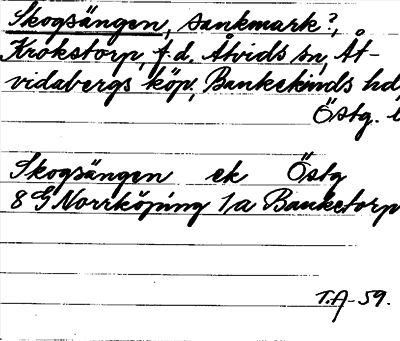 Skogsängen, sankmark?,
Krokstorp, f.d. Åtvids sn, Åt-
vidabergs köp, Bankekinds hd,
Östg. l
Skogsängen ek Östg
8 G Norrköping 1/a Banketorp
T.A-59.